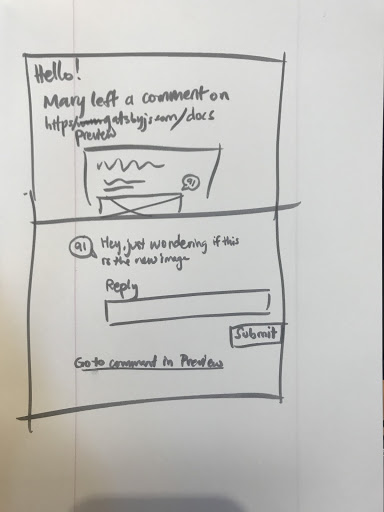 Hello!
Mary left a comment on
https gatsbyjs.com/docs
Preview
91
91 Hey, just wondering if this
is the new image
Reply
Submit
Go to command in Preview